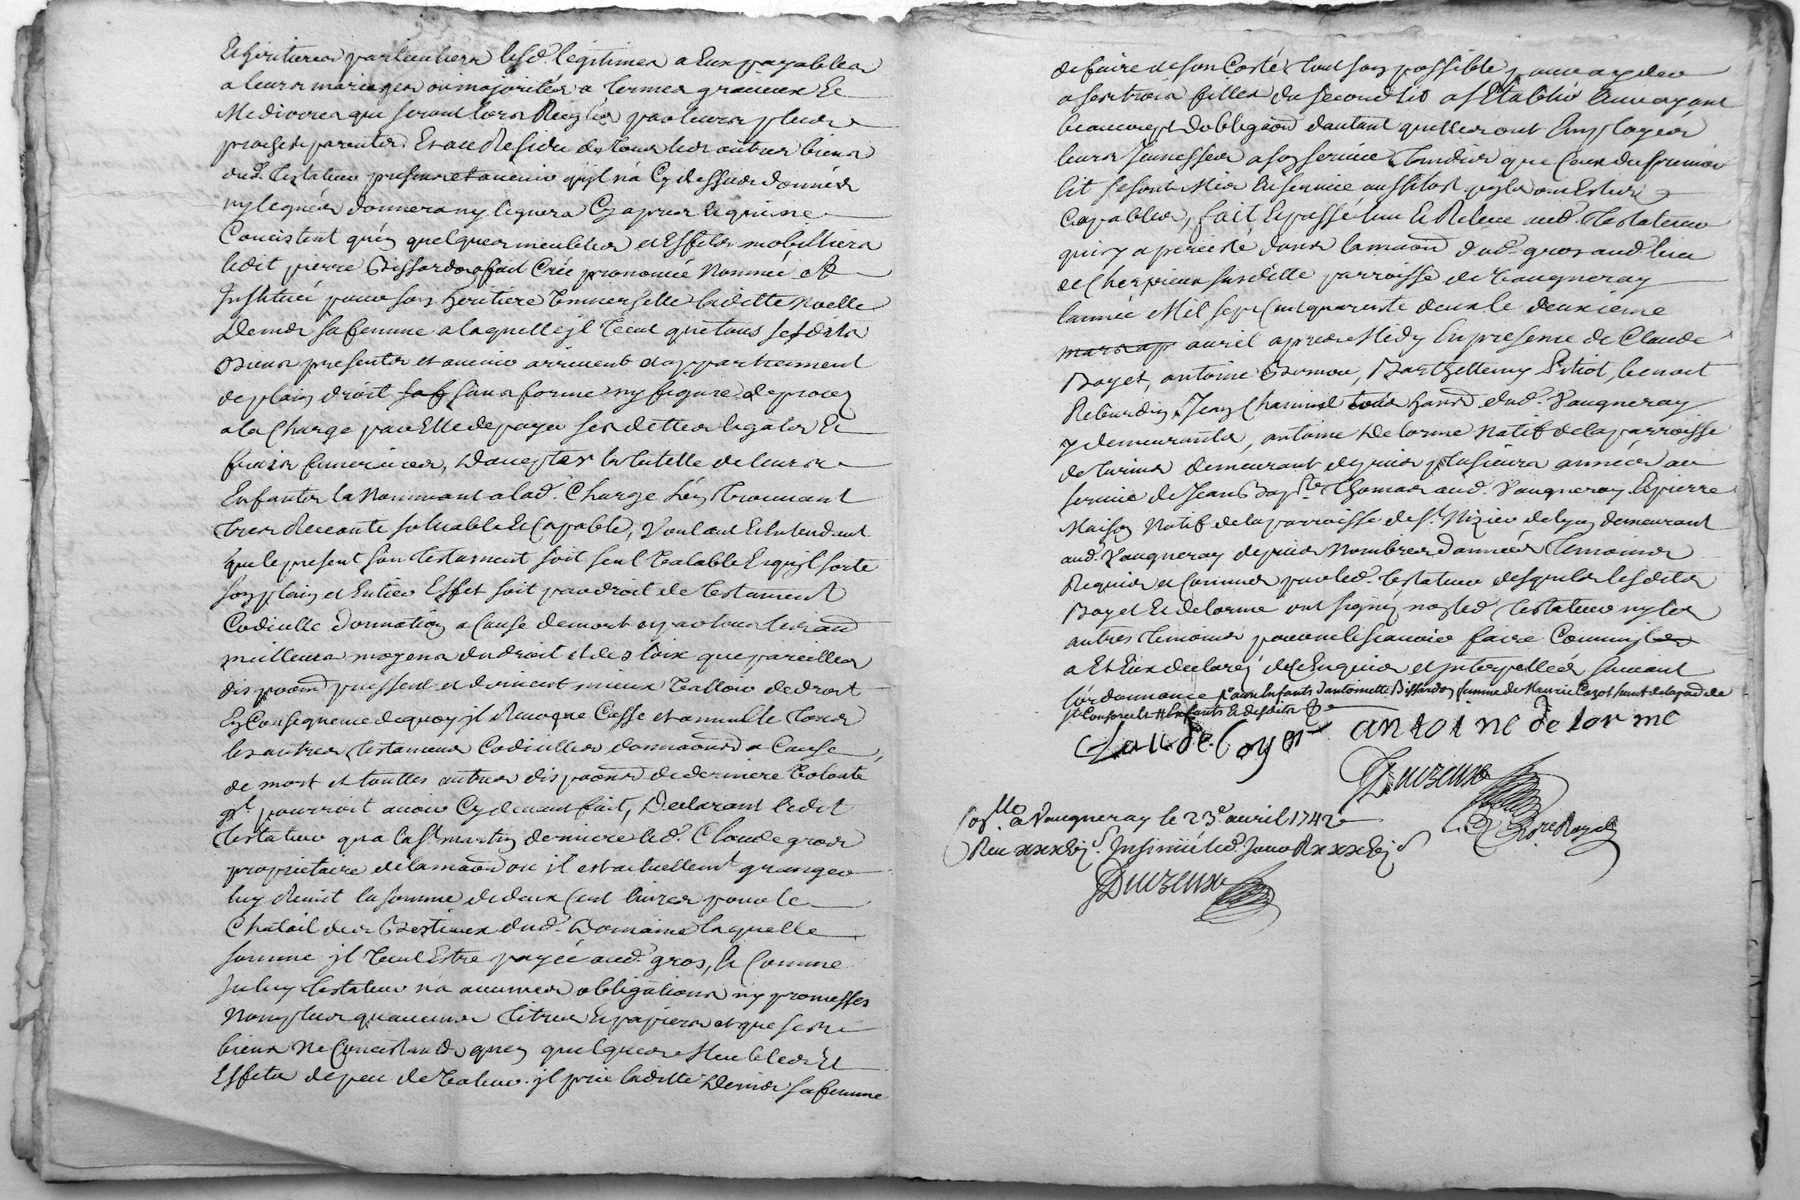 Et heritieres particulieres lesd. legitimes a Eux payables
a leurs mariages ou majorités a termes gracieux Et
Mediocres qui seront lors Reiglés par leurs plus
proches parents. Et au Residu de tous les autres biens
dud. testateur presents et avenir qu'jl n'a Cy dessus donnés
ny legués donnera ny leguera Cy apres Lesquels ne
Concistent qu'en quelques meubles et Effets mobilliers
ledit pierre Bissardon a fait Crée prononcée Nommée et
Jnstituée pour son heritiere universelle laditte noelle
Denis sa femme a laquelle jl veut que tous sesdits
Biens presents et avenir arrivent et appartiennent
de plain droit sans forme ny figure de proces
a la Charge par Elle de payer ses dettes legats Et
fraix funeraires, D'accepter la tutelle de leurs
Enfants la Nommant a lad. Charge L'en trouvant
tres Receante solvable Et Capable, Voulant Et Entendant
que le present son testament soit seul Valable Et qu'jl sorte
son plain et Entier Effet soit par droit de testament
Codicille donnation a Cause de mort ou par tous les
meilleurs moyens du droit et des loix que pareilles
puissent et doivent mieux Valloir de droit
En Consequence de quoy jl Revoque Casse et annulle tous
les autres testaments Codicilles a Cause
de mort et touttes autres de derniere Volonté
pourroit avoir Cy devant fait, Declarant ledit
testateur qu'a la St martin derniere led. Claude gros
proprietaire de la ou jl est actuellemt granger
luy Remit la somme de deux Cent livres pour le
Chatail des Bestiaux dud. Domaine laquelle
somme jl veut Estre payée aud. gros, Et Comme
luy testateur n'a aucunes obligations ny promesses
Non plus qu'aucuns titres Et papiers et que ses
biens Ne Concistent qu'en quelques Meubles Et
Effets de peu de Valeur jl prie laditte Denis sa femme
de faire de son Costé tout son possible pour ayder
a ses trois filles du second lit a s'Etablir Leur ayant
beaucoup d'obligaon d'autant qu'elles ont Employées
leurs Jeunesses a son service, tandis que Ceux du premier
lit se sont Mis En service aussitost qu'jls ont Esté
Capables, fait Et passé leu Et Releu aud. testateur
qui y a percisté dans la maon dud. gros aud. lieu
de Cherpieux susditte parroisse de Vaugneray
l'année Mil sept Cent quarante deux le deuxieme
avril apres Midy En presence de Claude
Boyet, antoine, Barthellemy Pitiot, benoit
Jean tous dud. Vaugneray
y demeurants, antoine Delorme Natif de la parroisse
de demeurant depuis plusieurs années au
service de Jean Bapte Thomas aud. Vaugneray, Et pierre
Maison Natif de la parroisse de St. Nizier de Lyon demeurant
aud. Vaugneray depuis Nombres d'années temoins
Requis et Connus par led. testateur desquels lesdits
Boyet Et delorme ont signé non led. testateur ny les
autres temoins pour ne le scavoir faire
a Et Eux declaré de Ce Enquis et jnterpellés suivant
l'ordonnance Enfants d'antoinette Bissardon femme de
Claude Boyet antoine delorme
Duizeux
a Vaugneray le 23e avril 1742
Duizeux